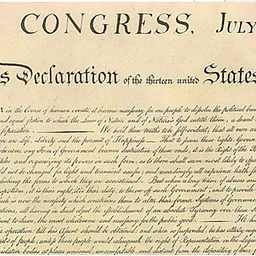 CONGRESS, July
s Declaration of the thirteen united States
in the Course of human events, it becomes necessary for one people to dissolve the political ban
and equal station to which the Laws of Nature and of Nature's God entitle them, a decent
separation. We hold these truths to be self-evident, that all men are
are Life, Liberty and the pursuit of Happiness. That to secure these rights, Governm
whenever any Form of Government becomes destructive of these ends, it is the Right of the
and organizing its powers in such form, as to them shall seem most likely to effect
not be changed for light and transient causes; and accordingly all experience hath
the forms to which they are accustomed. But when a long train of abuses an
it is their right, it is their duty, to throw off such Government, and to provide
is now the necessity which constrains them to alter their former Systems of Government
all having in direct object the establishment of an absolute Tyranny over these
the most wholesome and necessary for the public good. He has
till his Assent should be obtained; and when so suspended, he has utterly neg
of people, unless those people would relinquish the right of Representation in the Legis
bodies at places unusual, uncomfortable, and distant from the depository of the